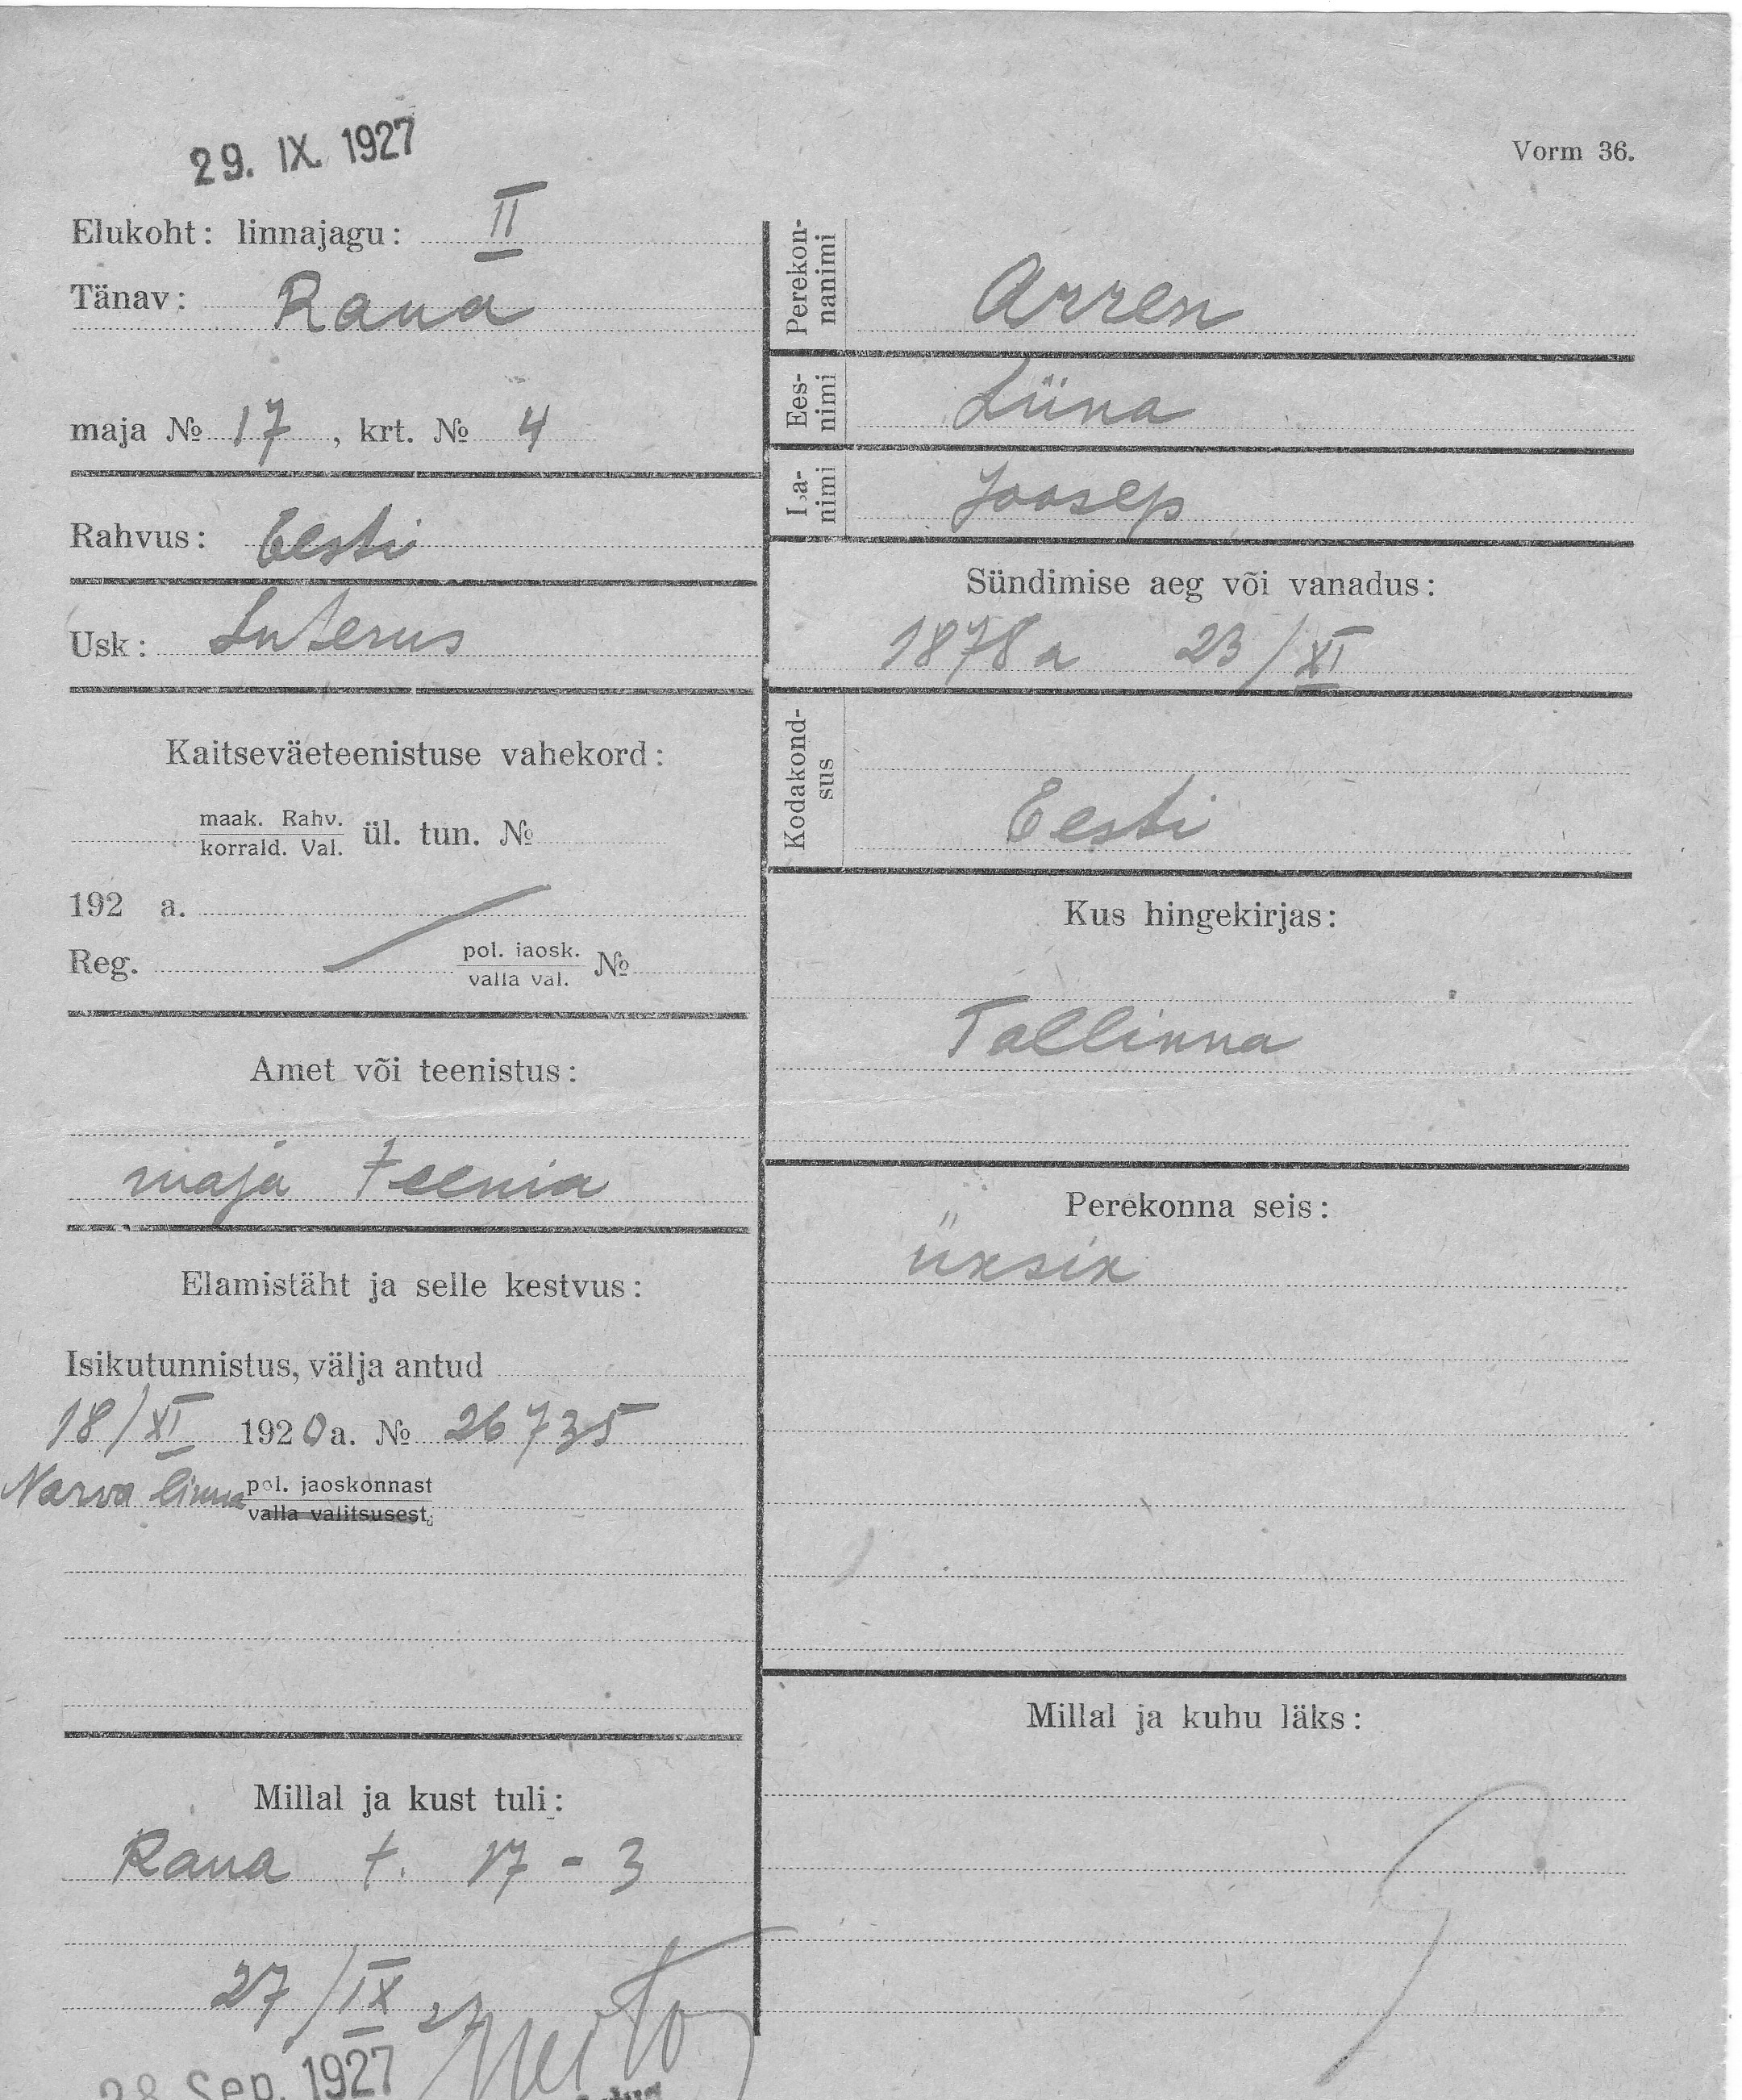 29. IX. 1927
Vorm 36.
Elukoht: linnajagu: II
Tänav: Raua
maja № 17, krt. № 4
Rahvus: Eesti
Usk: Luterus
Kaitseväeteenistuse vahekord:
maak. Rahv.
korrald. Val. ül. tun. №
192 a.
Reg. pol. jaosk.
valla val. №
Amet või teenistus:
maja teenia
Elamistäht ja selle kestvus:
Isikutunnistus, välja antud
18/XI 1920 a. № 26735
Narva linna pol. jaoskonnast
valla valitsusest
Millal ja kust tuli:
Raua t. 17 - 3
27/IX 27
28 Sep. 1927
Perekon-
nanimi
Arren
Ees-
nimi
Liina
Isa-
nimi
Joosep
Sündimise aeg või vanadus:
1878 a 23/XI
Kodakond-
sus
Eesti
Kus hingekirjas:
Tallinna
Perekonna seis:
üxsix
Millal ja kuhu läks: